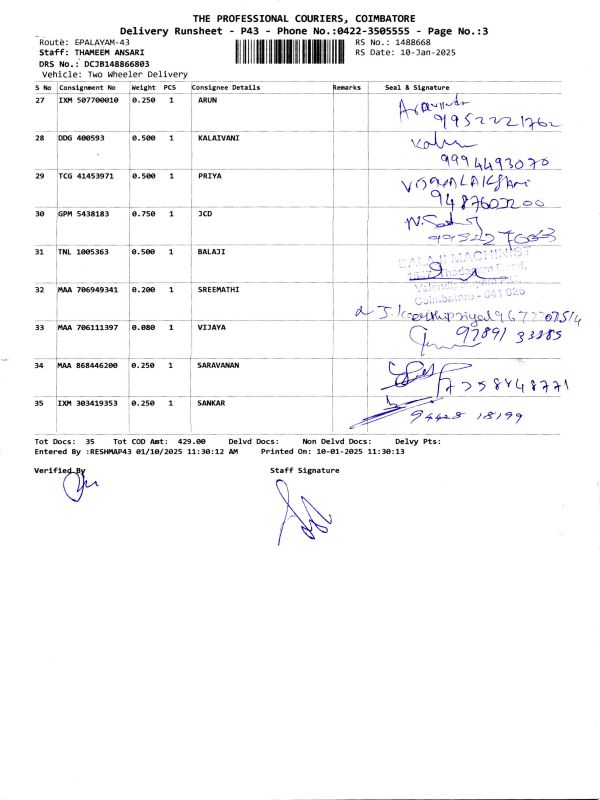 THE PROFESSIONAL COURIERS, COIMBATORE
Delivery Runsheet - P43 - Phone No.:0422-3505555 - Page No.:3
Route: EPALAYAM-43 RS No.: 1488668
Staff: THAMEEM ANSARI RS Date: 10-Jan-2025
DRS No.: DCJB148866803
Vehicle: Two Wheeler Delivery
S No Consignment No Weight PCS Consignee Details Remarks Seal & Signature
27 IXM 507700010 0.250 1 ARUN
9952221762
28 DDG 400593 0.500 1 KALAIVANI
9994493070
29 TCG 41453971 0.500 1 PRIYA
30 GPM 5438183 0.750 1 JCD
31 TNL 1005363 0.500 1 BALAJI
BALAJI MACHINIST
Coimbatore - 641 025
32 MAA 706949341 0.200 1 SREEMATHI
33 MAA 706111397 0.080 1 VIJAYA
97891 33385
34 MAA 868446200 0.250 1 SARAVANAN
7358848771
35 IXM 303419353 0.250 1 SANKAR
94428 18199
Tot Docs: 35 Tot COD Amt: 429.00 Delvd Docs: Non Delvd Docs: Delvy Pts:
Entered By :RESHMAP43 01/10/2025 11:30:12 AM Printed On: 10-01-2025 11:30:13
Verified By Staff Signature